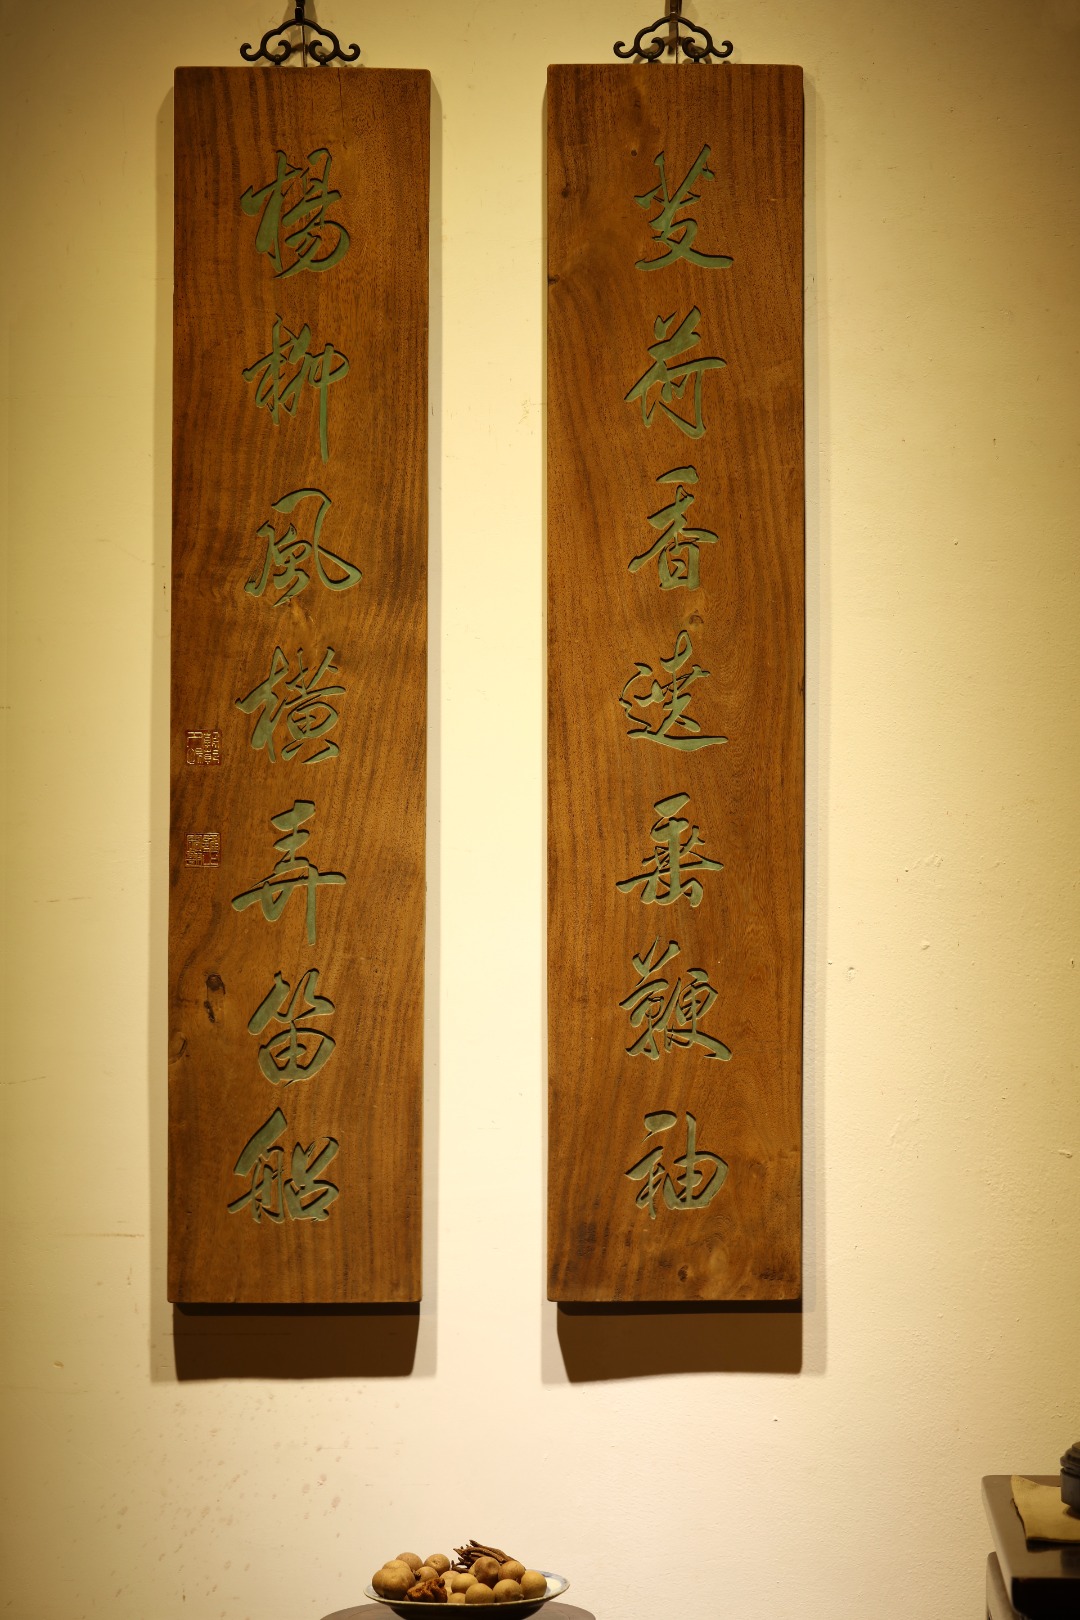 芰荷香遶垂鞭袖
楊柳風橫弄笛船